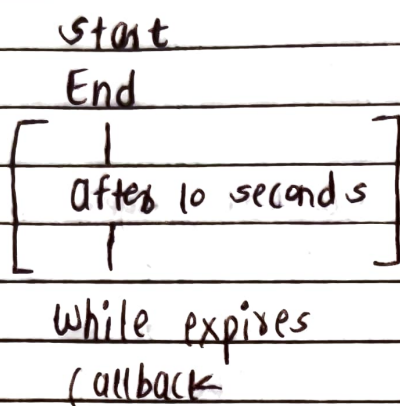 Start
End
After 10 seconds
While expires
Callback